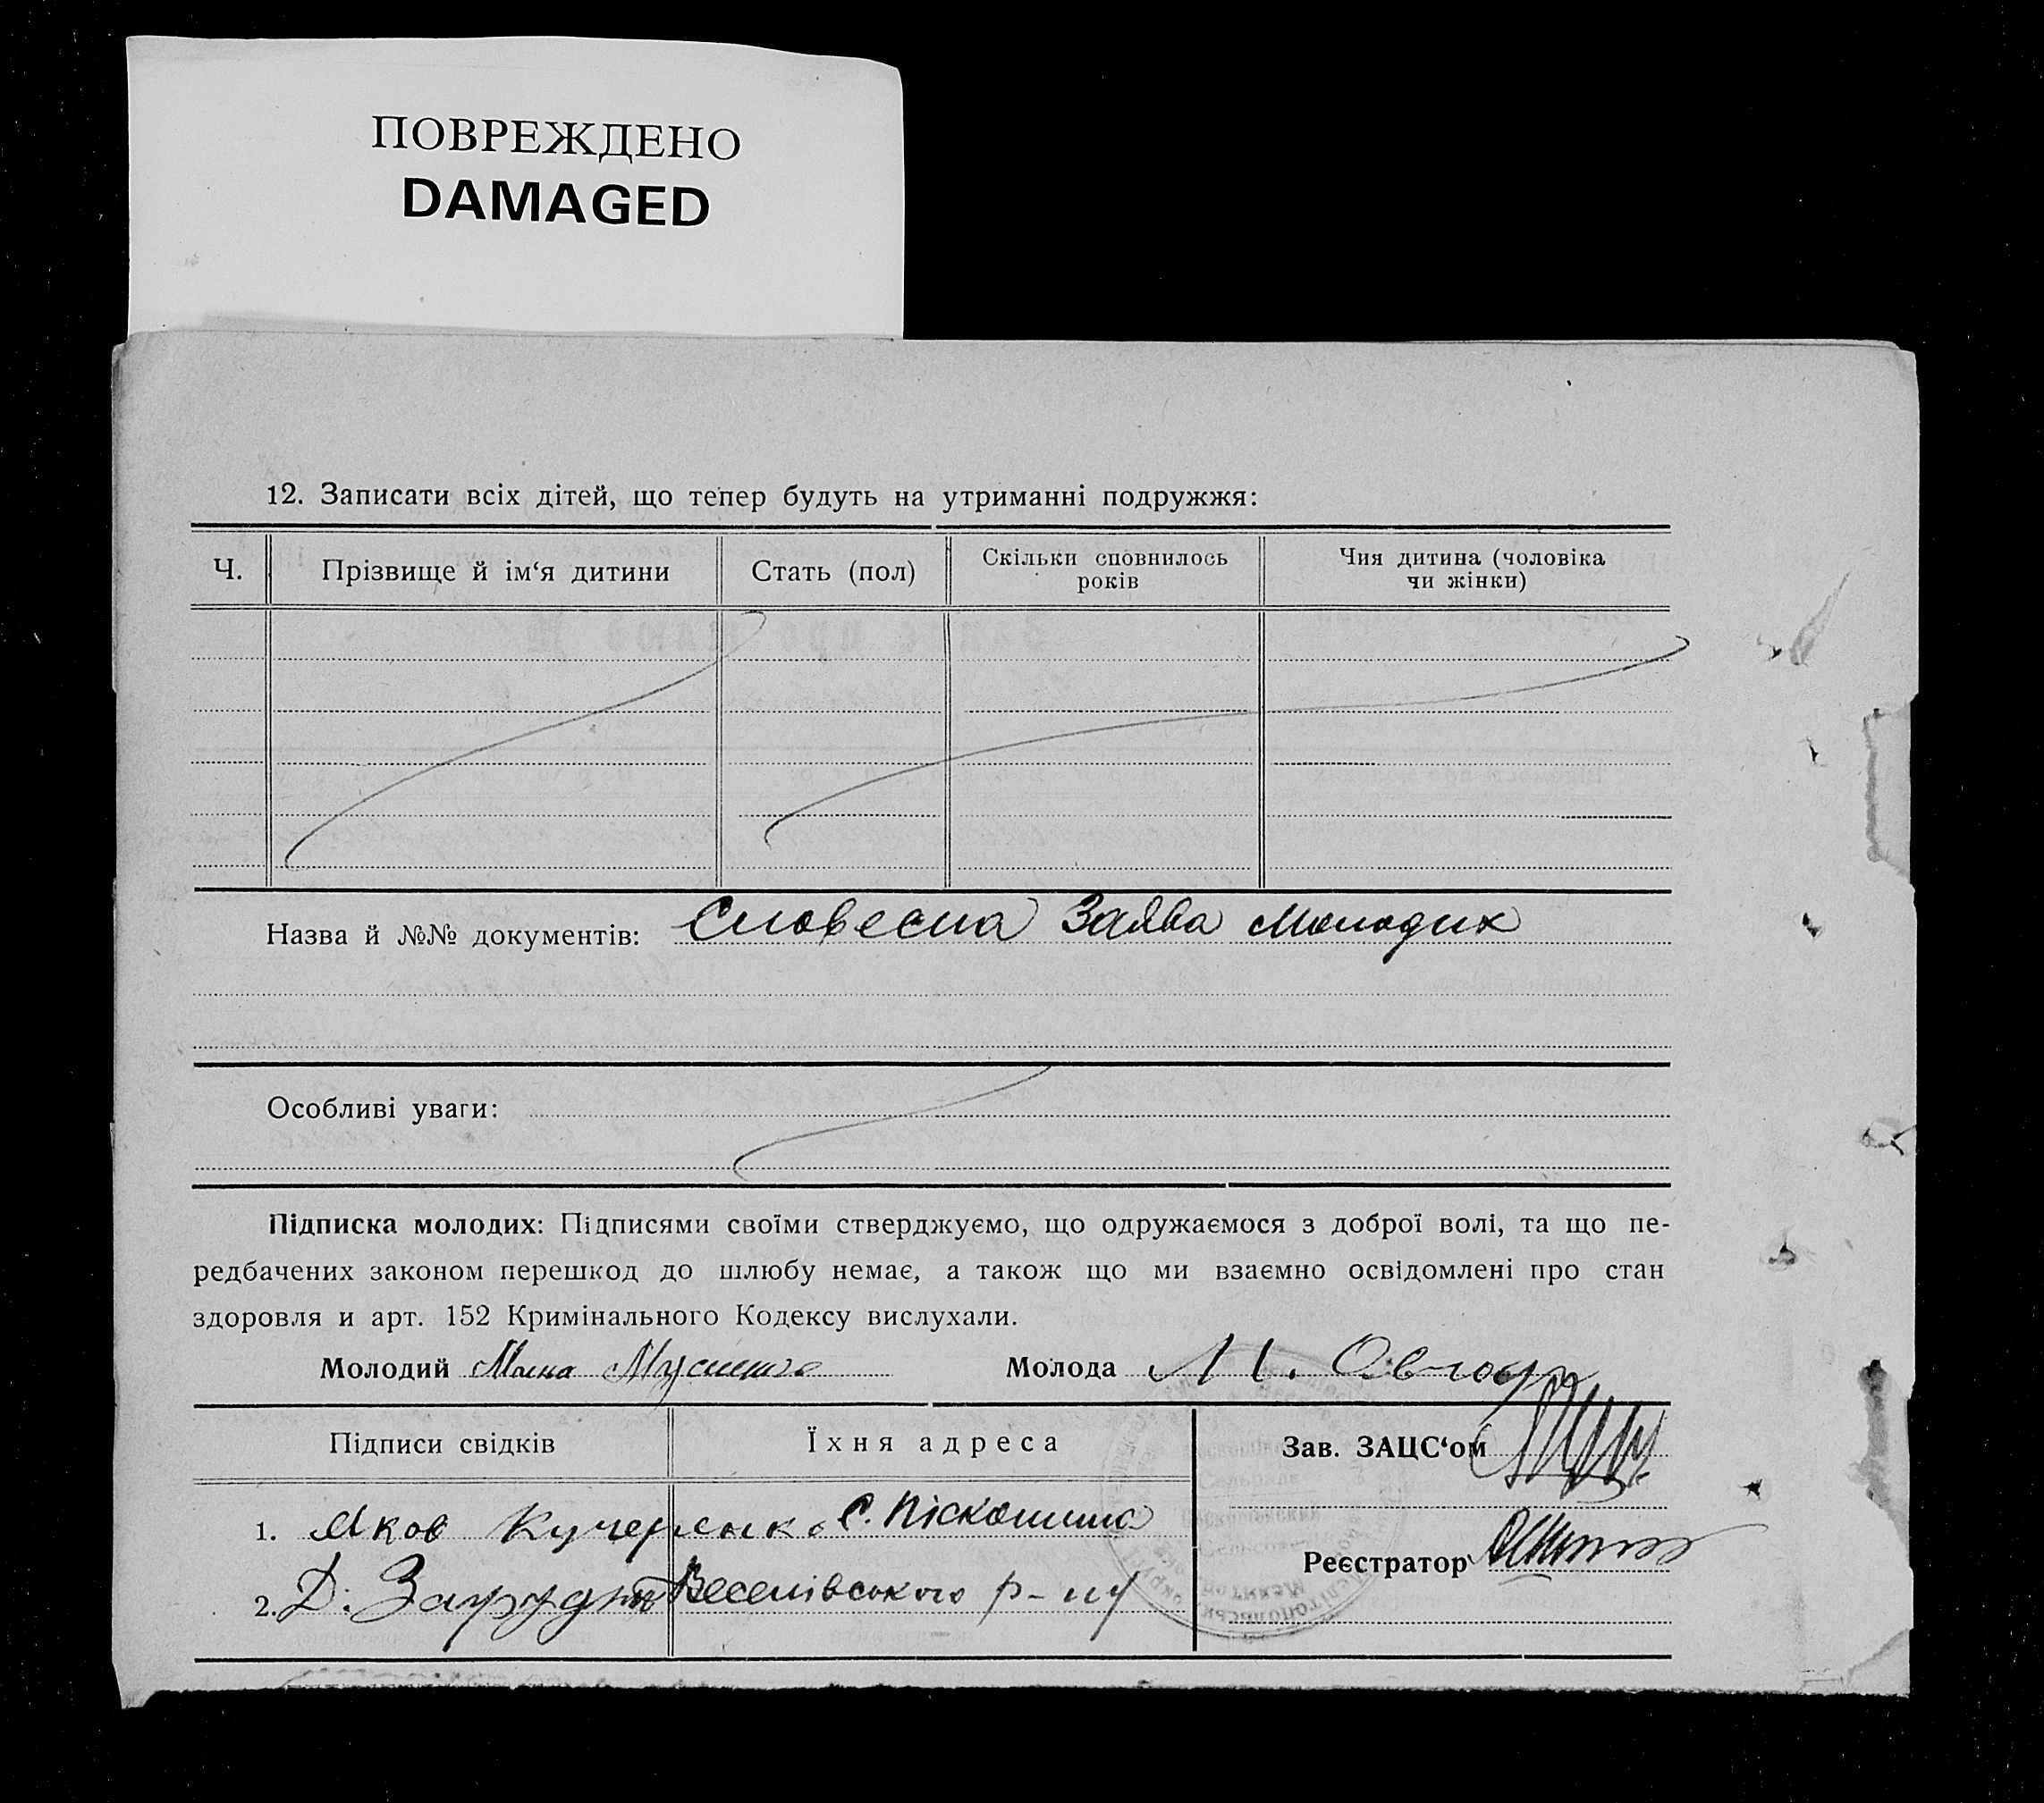 ПОВРЕЖДЕНО
DAMAGED
12. Записати всіх дітей, що тепер будуть на утриманні подружжя:
Ч.
Прізвище й ім‘я дитини
Стать (пол)
Скільки сповнилось
років
Чия дитина (чоловіка
чи жінки)
Назва й №№ документів: Словесна Заява Молодих
Особливі уваги:
Підписка молодих: Підписями своїми стверджуємо, що одружаємося з доброї волі, та що пе-
редбачених законом перешкод до шлюбу немає, а також що ми взаємно освідомлені про стан
здоровля и арт. 152 Кримінального Кодексу вислухали.
Молодий
Молода М.
Підписи свідків
Їхня адреса
Зав. ЗАЦС‘ом
1. Яков С. Піскошина
2. Д. Веселівського р-ну
Реєстратор